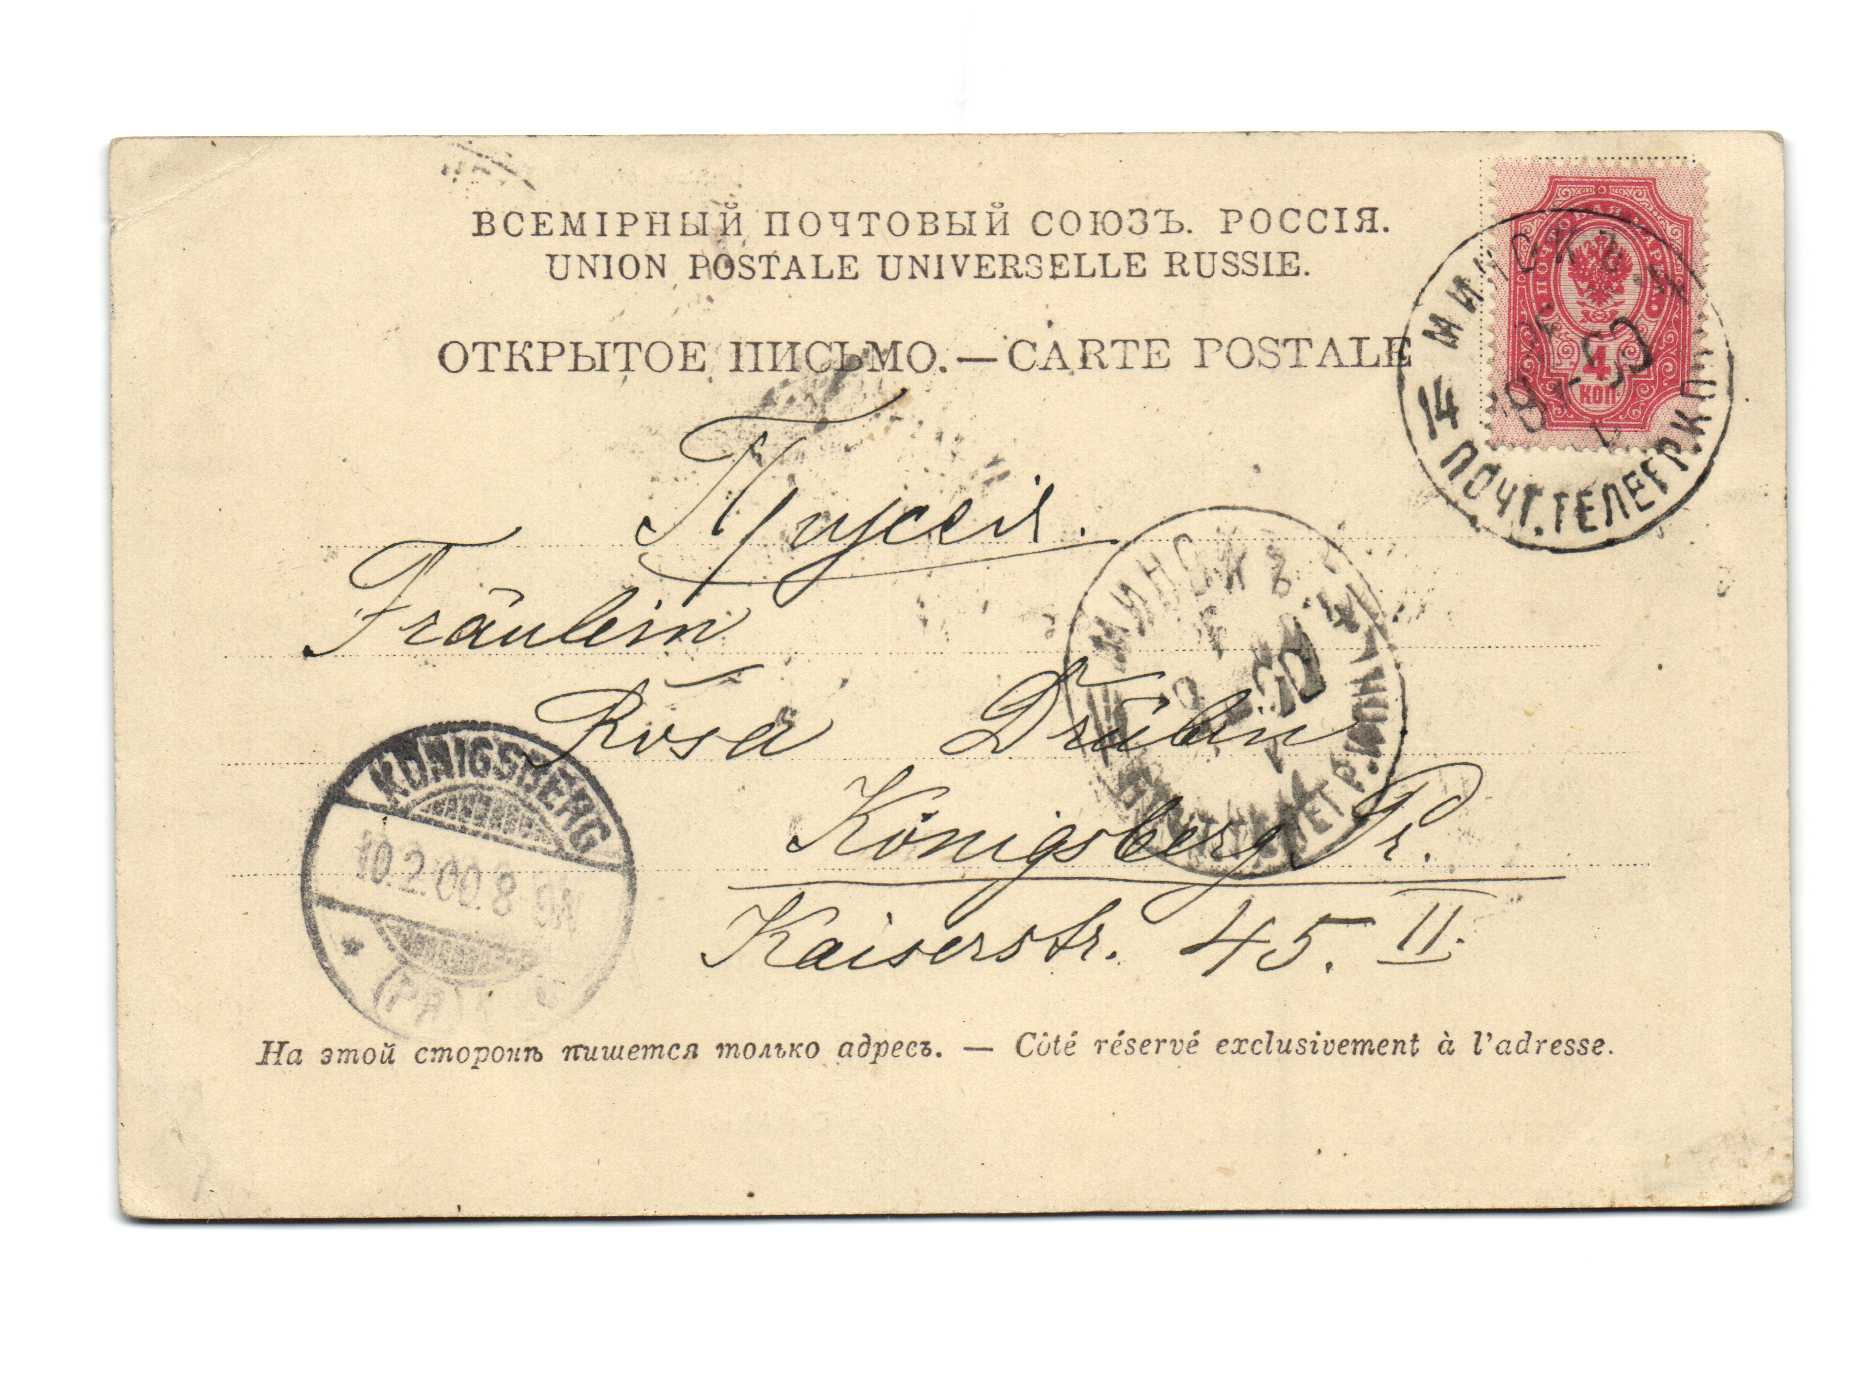 ВСЕМІРНЫЙ ПОЧТОВЫЙ СОЮЗЪ. РОССІЯ.
UNION POSTALE UNIVERSELLE RUSSIE.
ОТКРЫТОЕ ПИСЬМО. — CARTE POSTALE
ПОЧТОВАЯ МАРКА
4
КОП
МИНСКЪ
14 ПОЧТ.ТЕЛЕГР.К
Пруссія.
Fräulein
Rosa
Königsberg Pr.
Kaiserstr. 45. II.
МИНСКЪ
KÖNIGSBERG
10.2.00. 8-9N
* (PR)
На этой сторонѣ пишется только адресъ. — Côté réservé exclusivement à l'adresse.